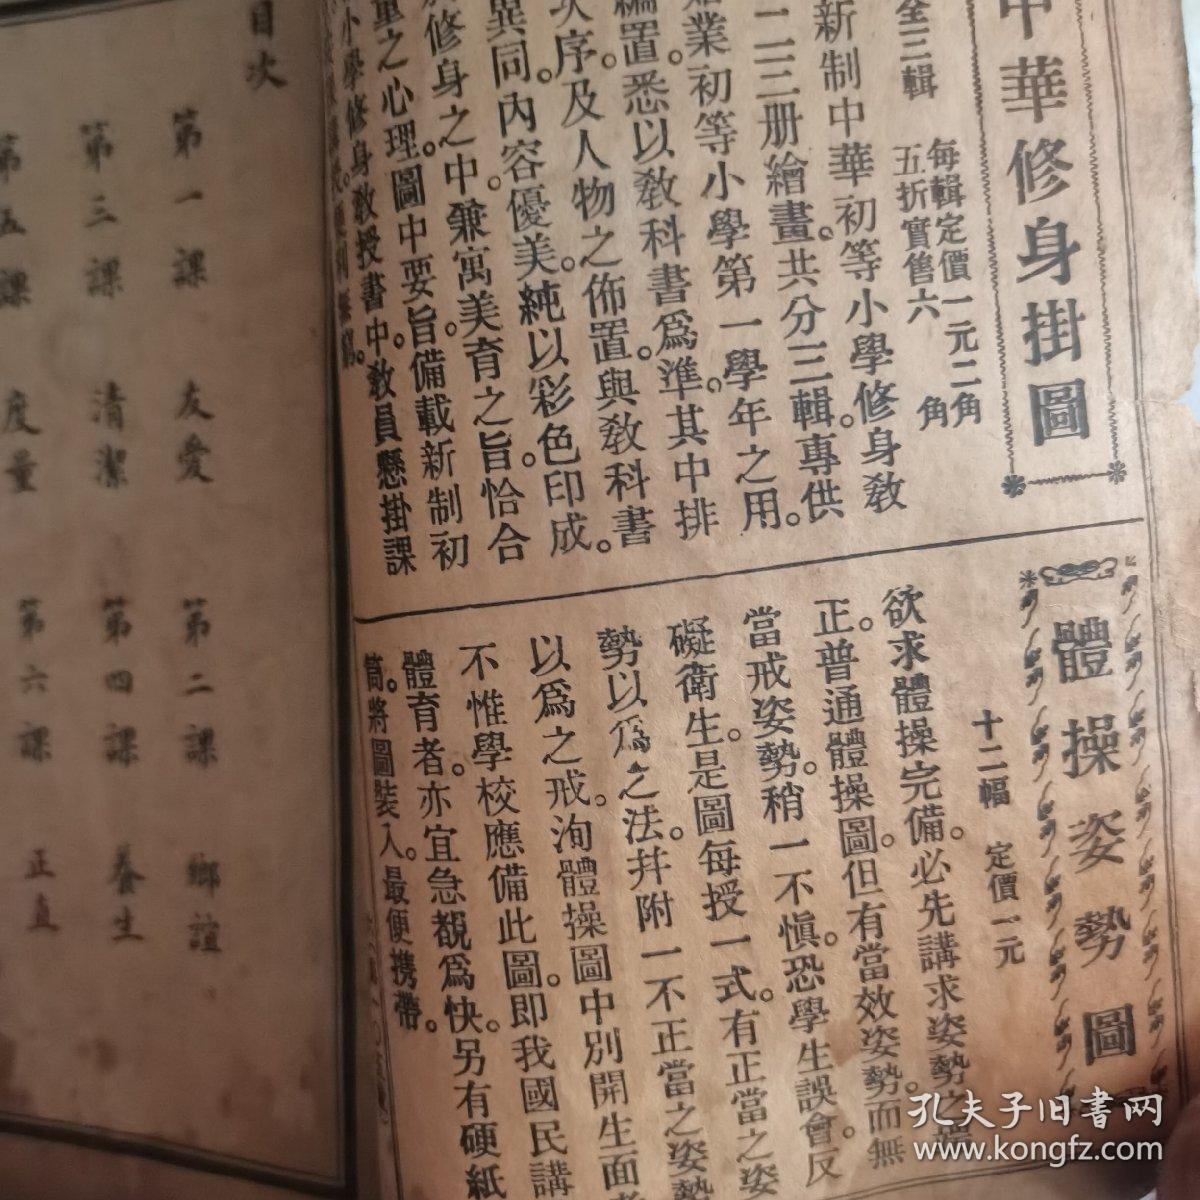 中華修身掛圖
全三輯
每輯定價一元二角
五折實售六角
新制中華初等小學修身敎
一二三册繪畫。共分三輯。專供
業初等小學第一學年之用。
編置悉以敎科書爲準。其中排
次序。及人物之佈置。與敎科書
異同。內容優美。純以彩色印成。
修身之中。兼寓美育之旨。恰合
童之心理。圖中要旨。備載新制初
小學修身敎授書中。敎員懸掛課
體操姿勢圖
十二幅 定價一元
欲求體操完備。必先講求姿勢之
正。普通體操圖。但有當效姿勢。而無
當戒姿勢。稍一不愼。恐學生誤會。反
礙衛生。是圖每授一式。有正當之姿
勢以爲之法。幷附一不正當之姿勢
以爲之戒。洵體操圖中別開生面者
不惟學校應備此圖。即我國民講
體育者。亦宜急覩爲快。另有硬紙
筒。將圖裝入。最便携帶。
目次
第一課 友愛
第二課 鄉誼
第三課 清潔
第四課 養生
第五課 度量
第六課 正直
孔夫子旧書网
www.kongfz.com